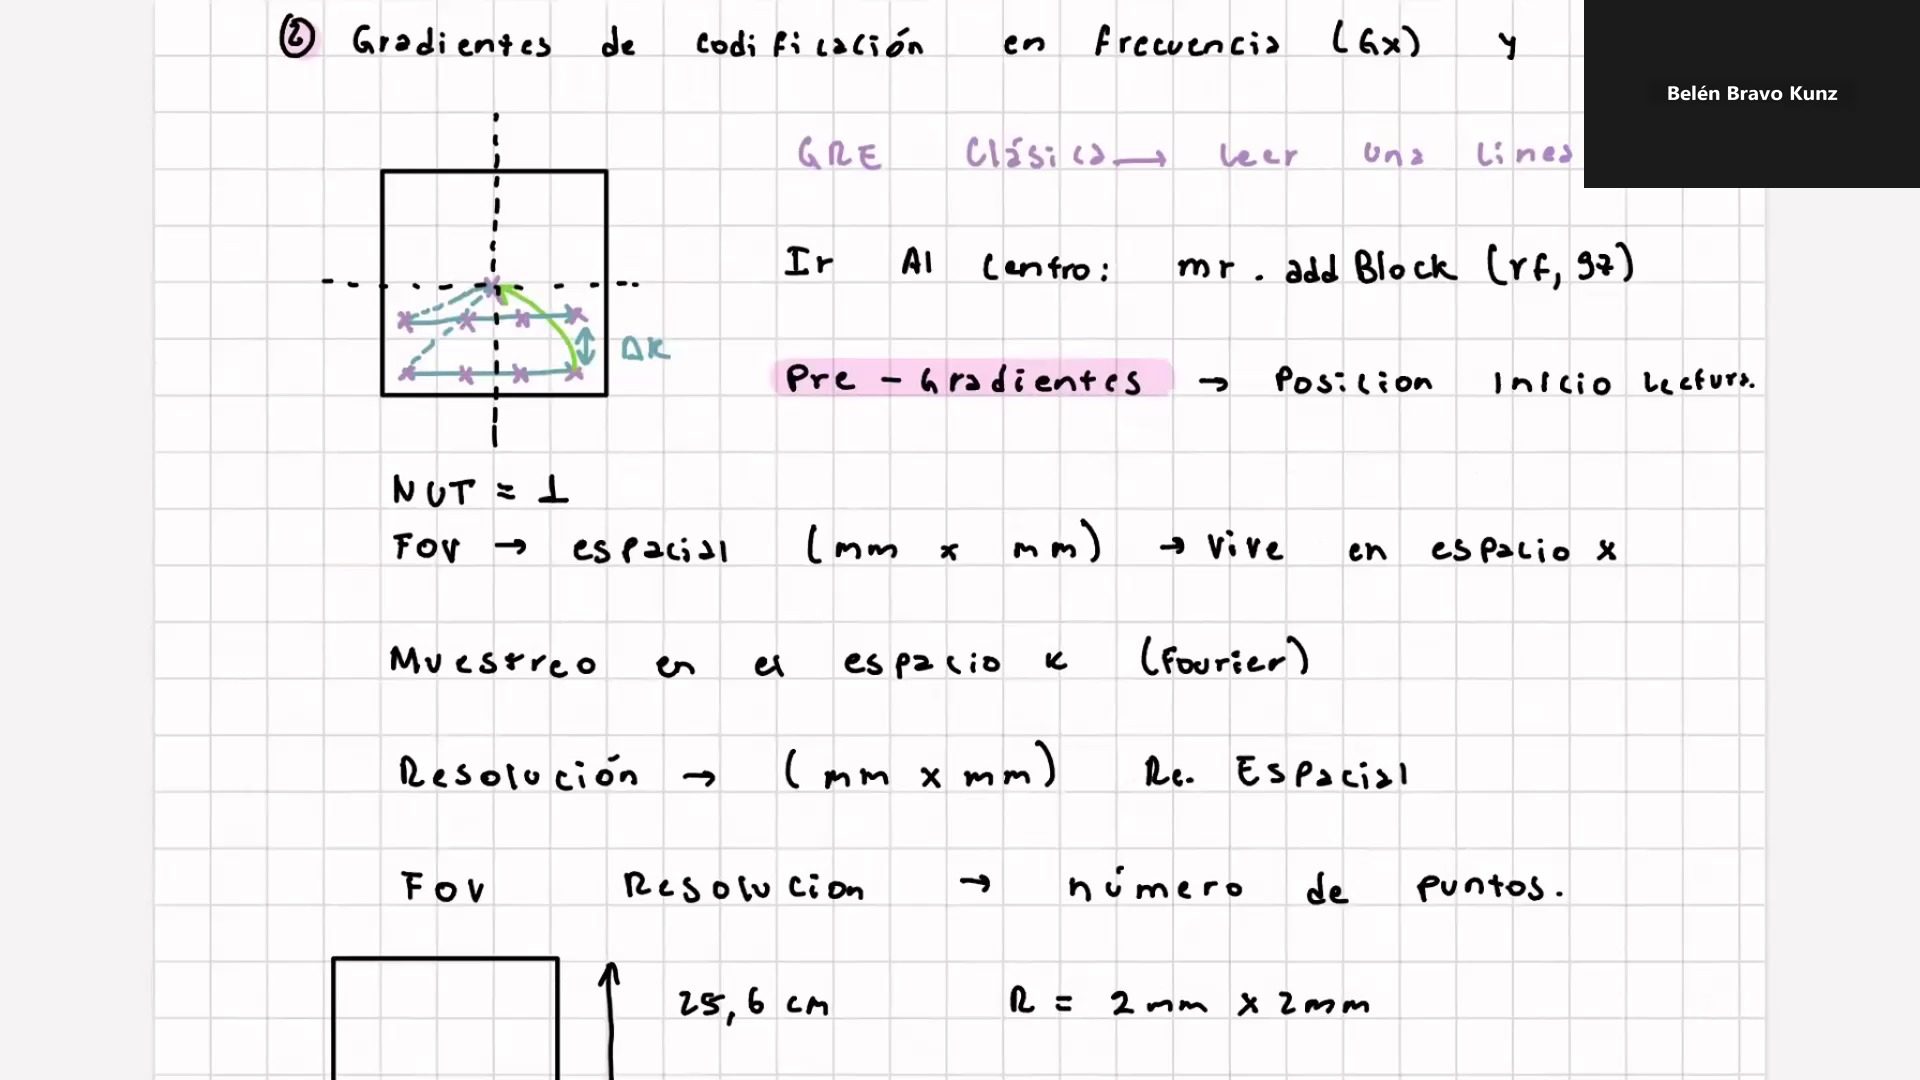 ② Gradientes de codificación en frecuencia (Gx) y
Belén Bravo Kunz
GRE Clásica → leer una linea
Ir Al Centro: mr . add Block (rf, gz)
Pre - Gradientes → Posicion Inicio Lectura.
ΔK
NUT = 1
FOV → espacial (mm x mm) → vive en espacio x
Muestreo en el espacio K (Fourier)
Resolución → (mm x mm) Re. Espacial
FOV Resolucion → número de puntos.
25,6 cm R = 2 mm x 2 mm